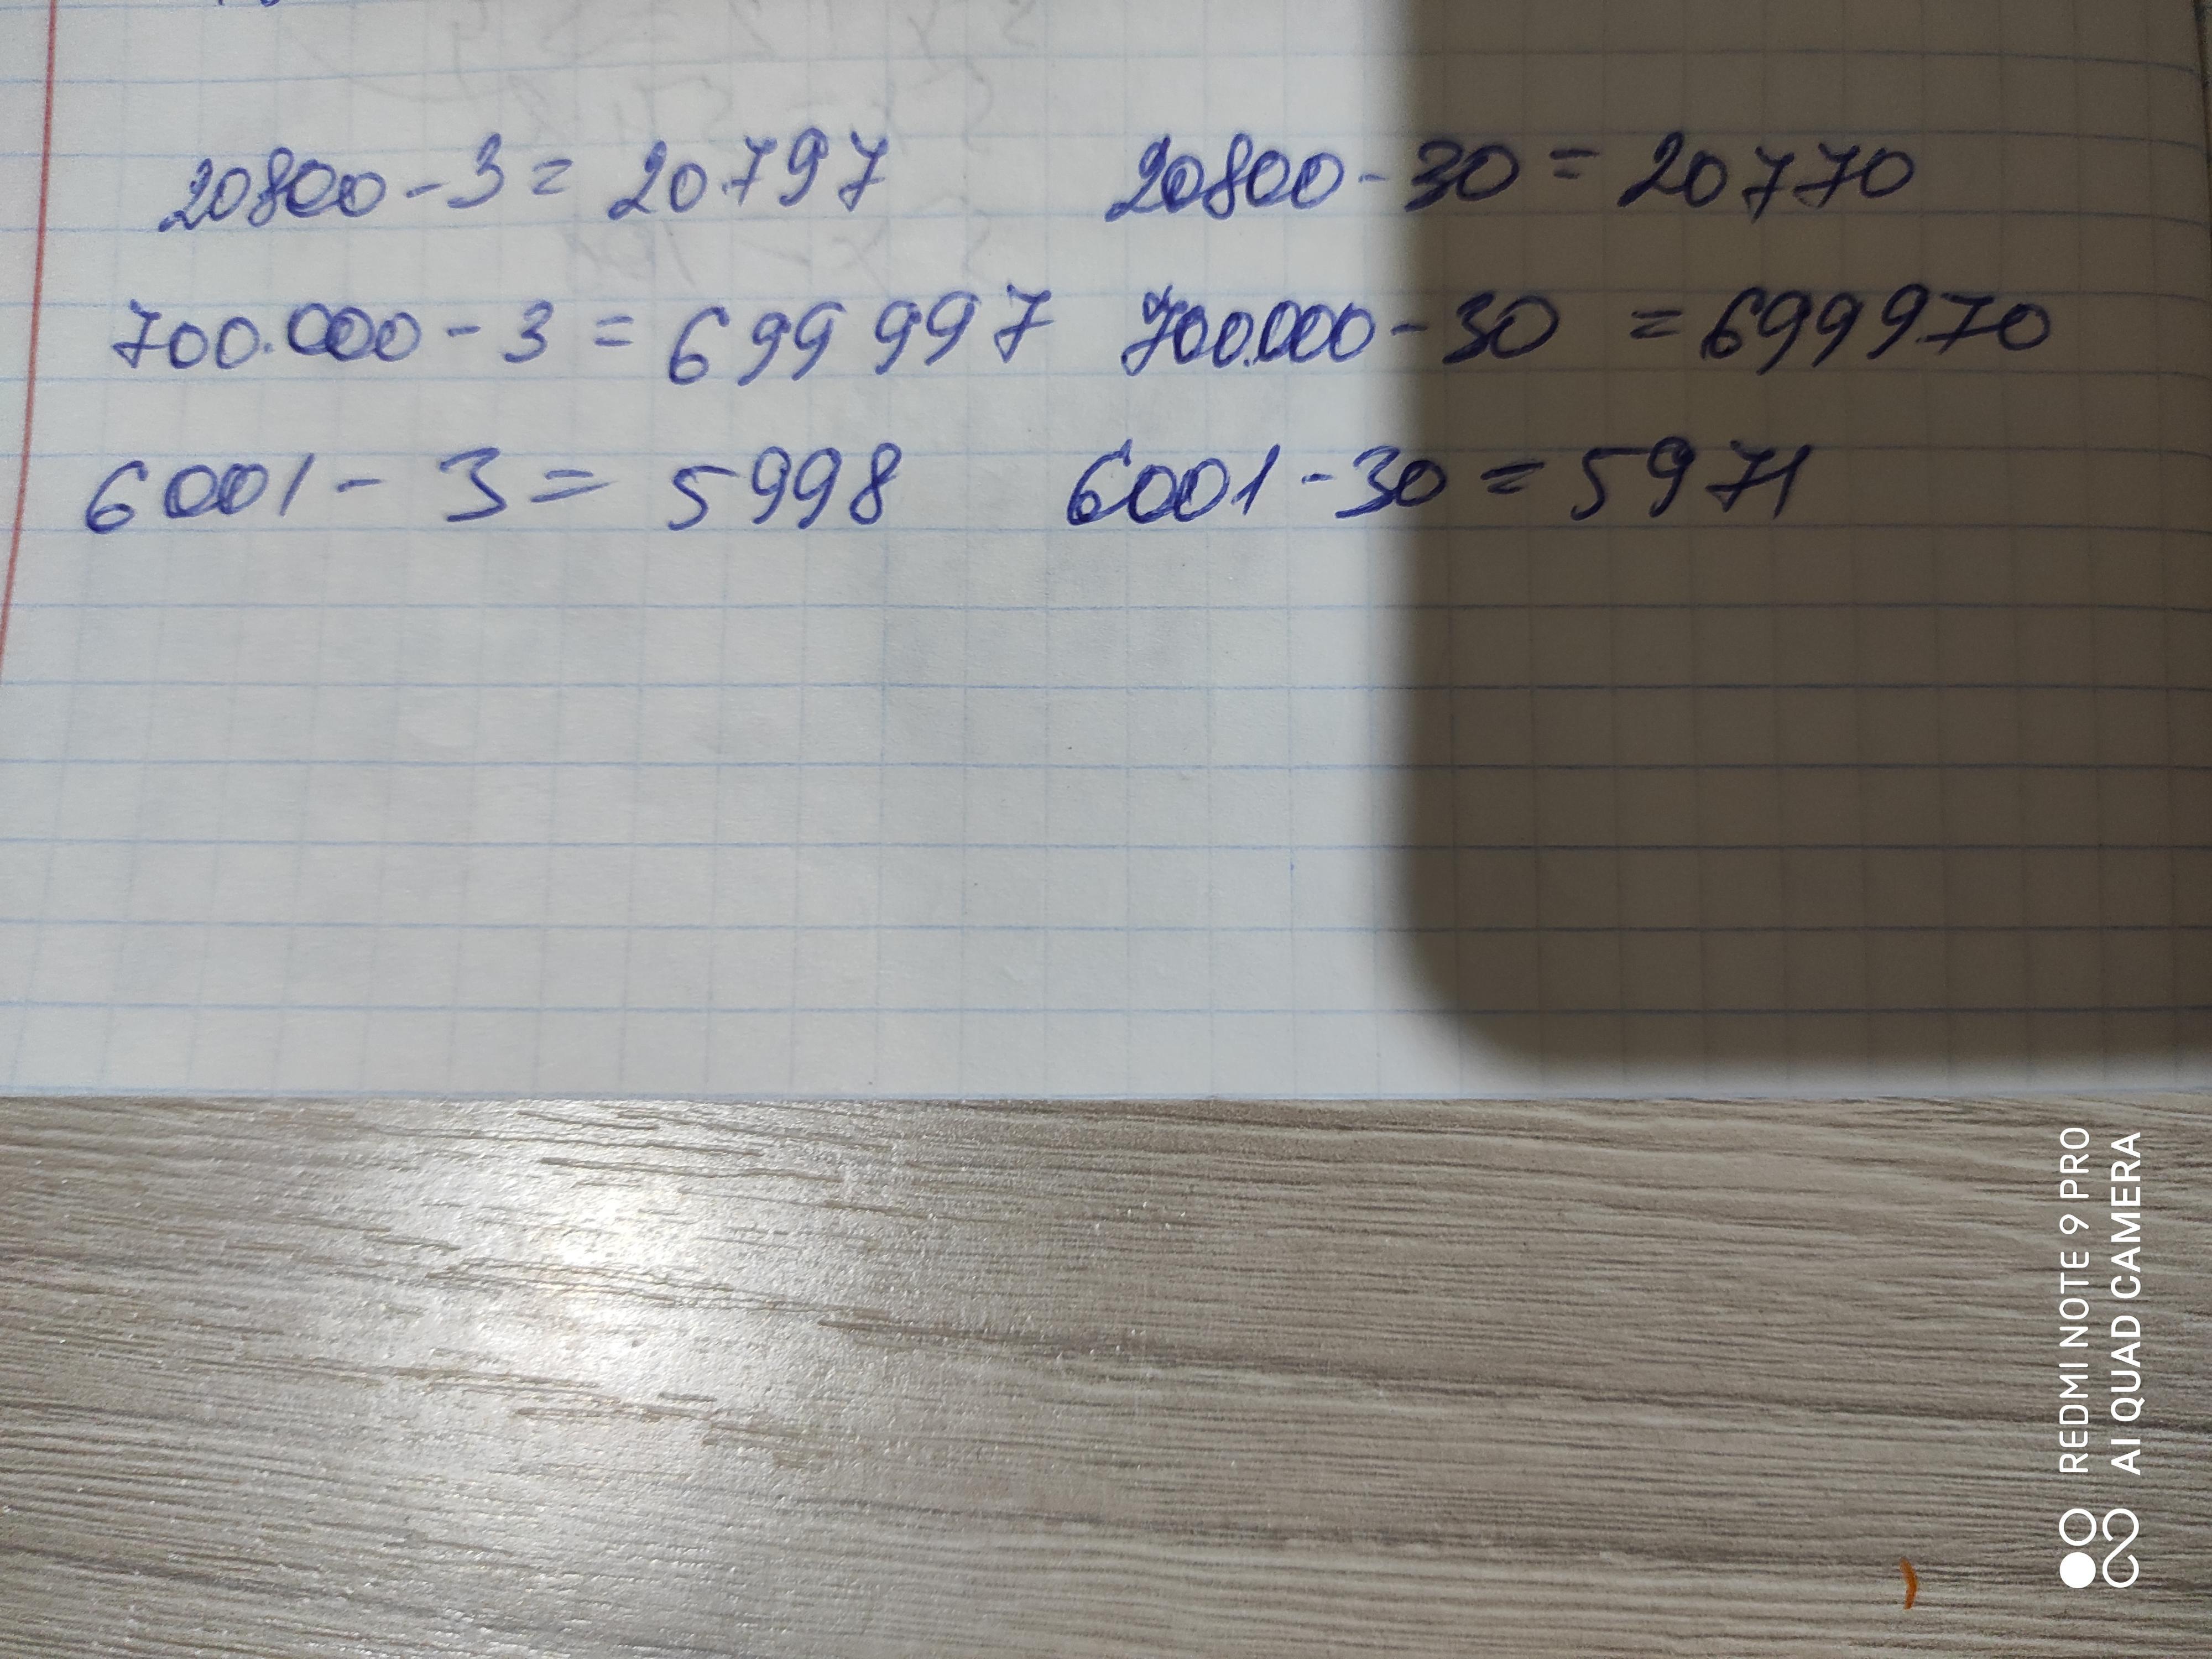 20800 - 3 = 20797 20800 - 30 = 20770
700.000 - 3 = 699 997 700.000 - 30 = 699970
6001 - 3 = 5998 6001 - 30 = 5971
REDMI NOTE 9 PRO
AI QUAD CAMERA